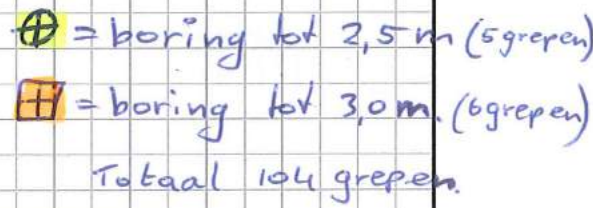 ⊕ = boring tot 2,5 m (5 grepen)
⊞ = boring tot 3,0 m. (6 grepen)
Totaal 104 grepen.